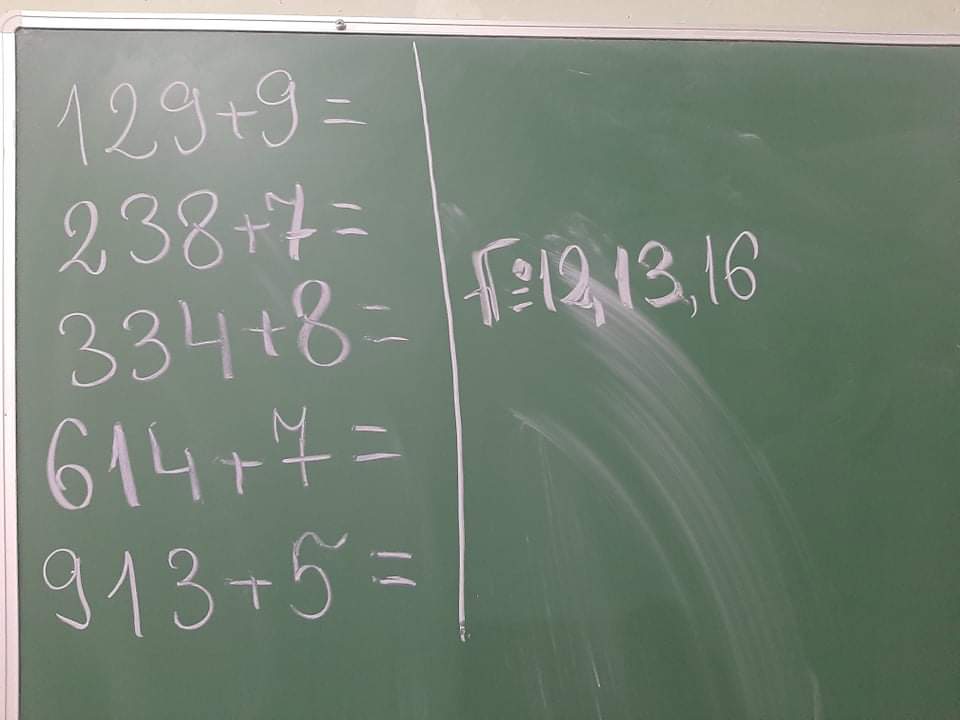 129+9=
238+7=
334+8=
614+7=
913+5=
12,13,16